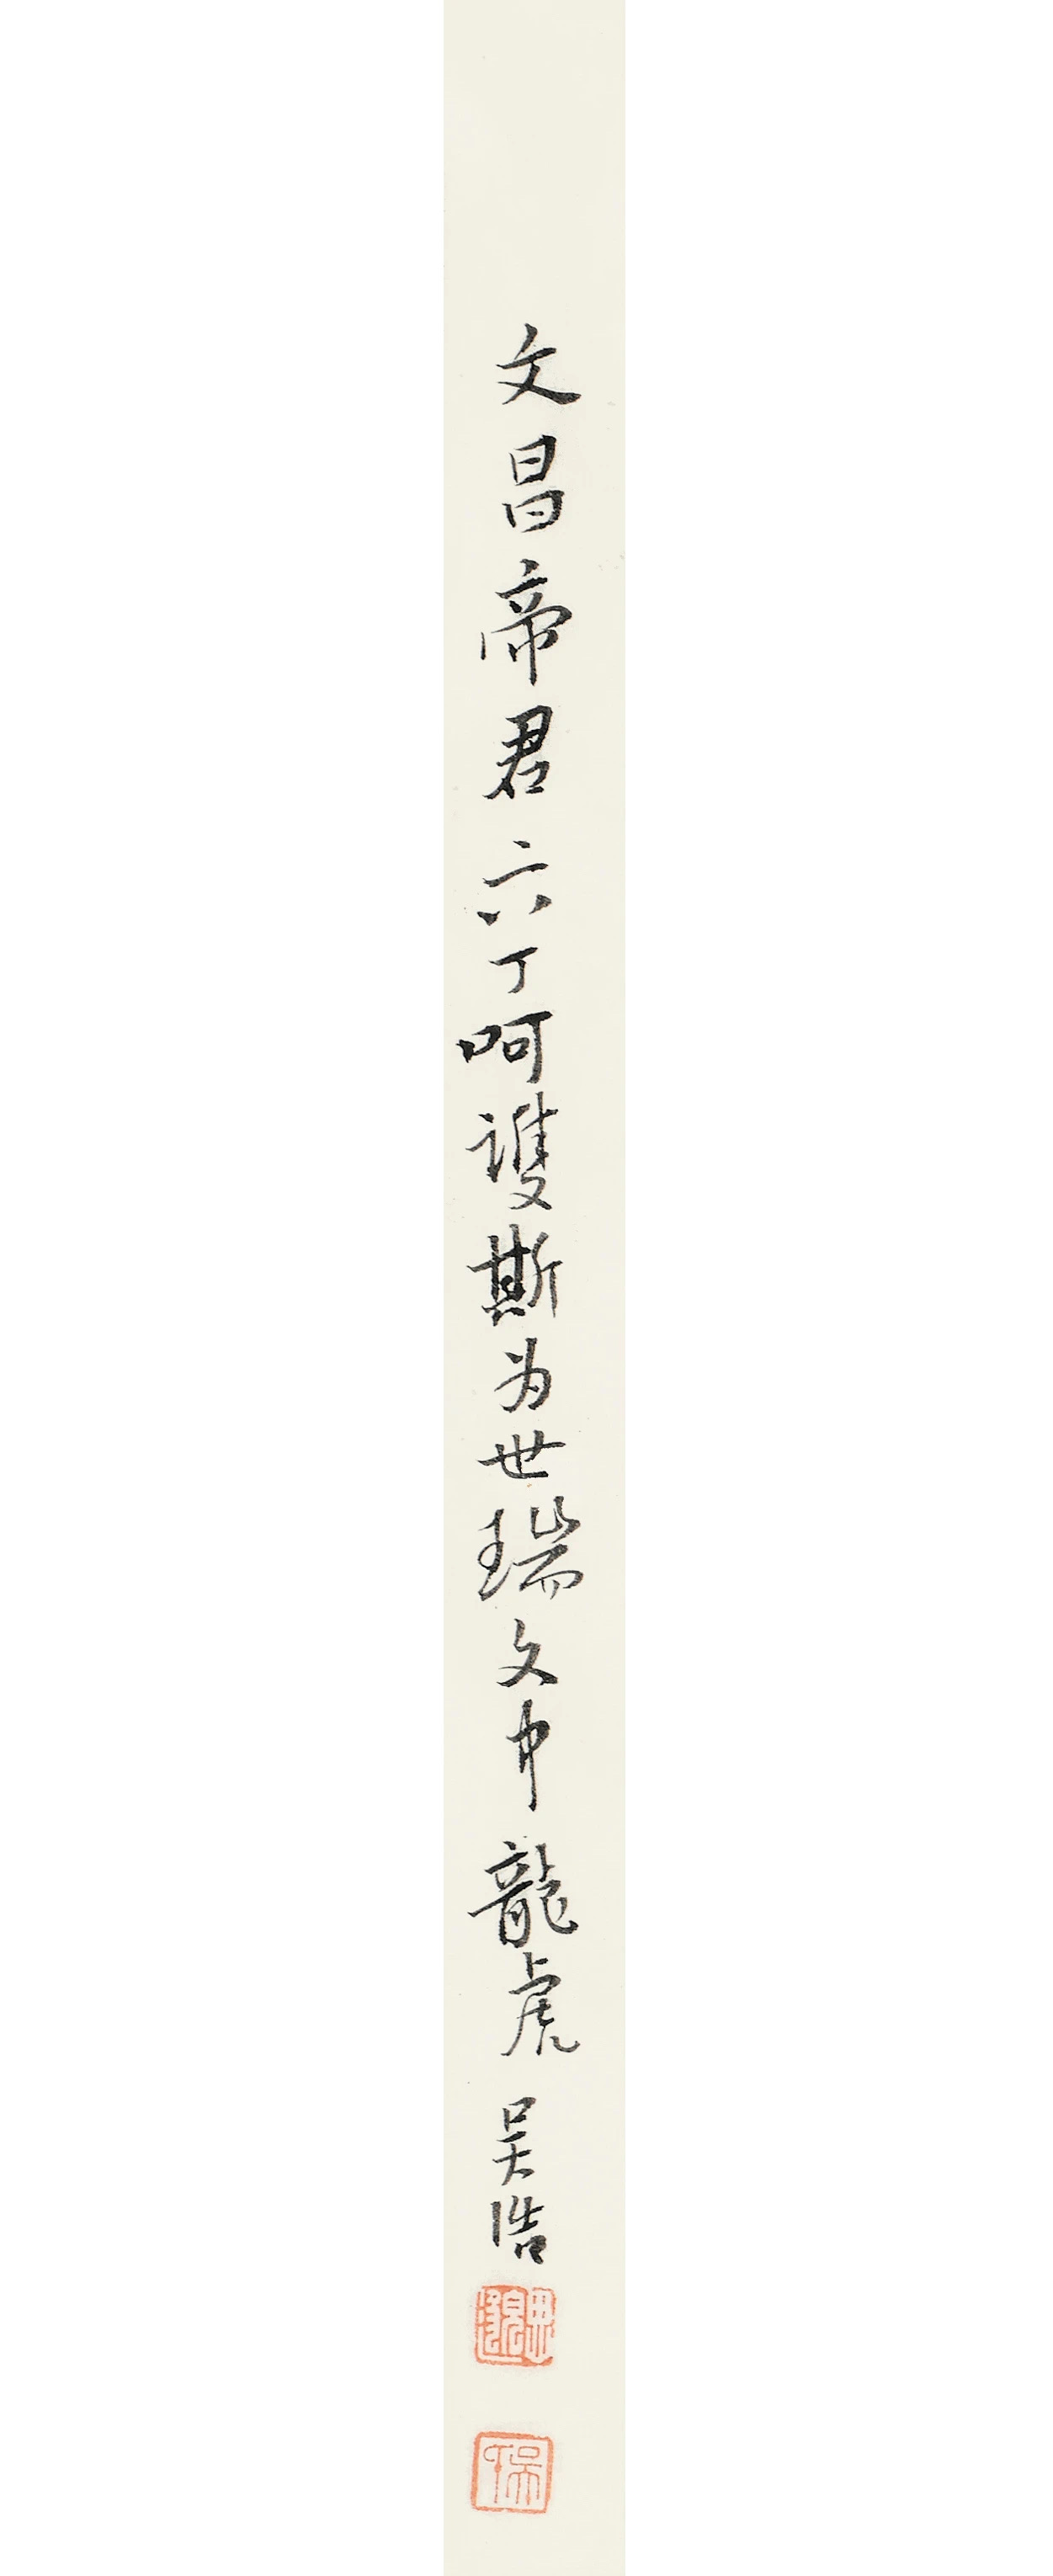 文昌帝君六丁呵護斯为世瑞文中龍虎吴浩